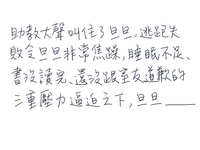 助教大聲叫住了旦旦，逃跑失
敗令旦旦非常焦躁，睡眠不足、
書沒讀完、還沒跟室友道歉的
三重壓力逼迫之下，旦旦____